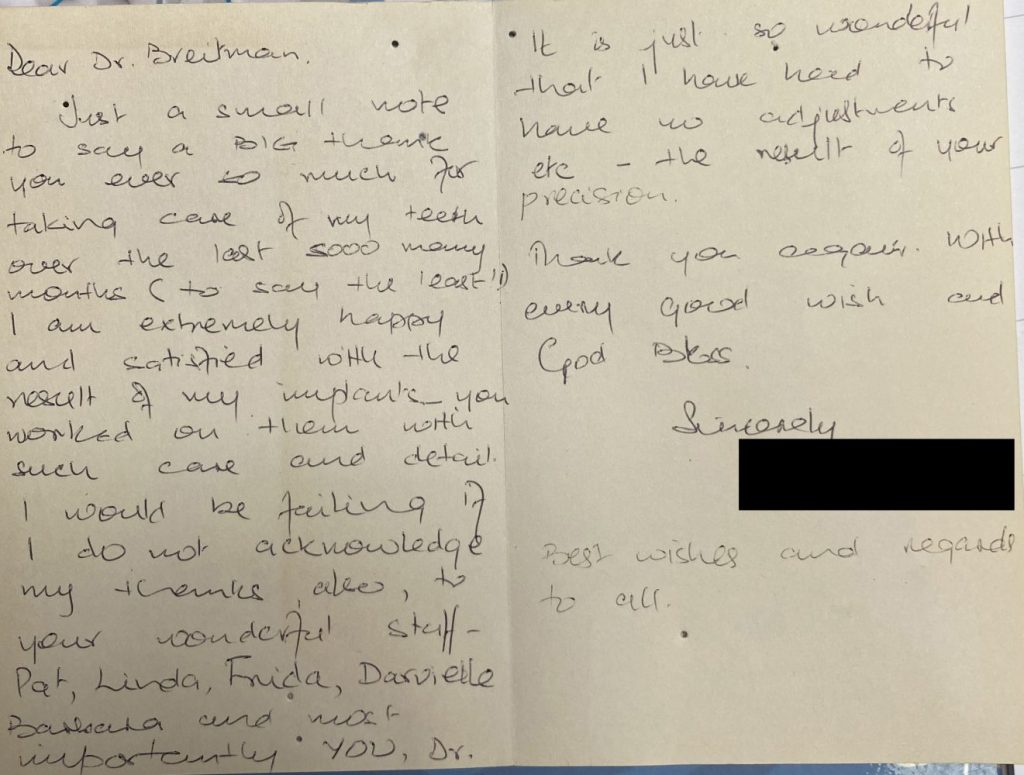 Dear Dr. Breitman.
Just a small note
to say a BIG thank
you ever so much for
taking care of my teeth
over the last sooo many
months (to say the least!!)
I am extremely happy
and satisfied with the
result of my implants – you
worked on them with
such care and detail.
I would be failing if
I do not acknowledge
my thanks, also, to
your wonderful staff –
Pat, Linda, Frida, Darvielle
Barbara and most
importantly YOU, Dr.
It is just so wonderful
that I have had to
have no adjustments
etc – the result of your
precision.
Thank you again. With
every good wish and
God Bless.
Sincerely
Best wishes and regards
to all.